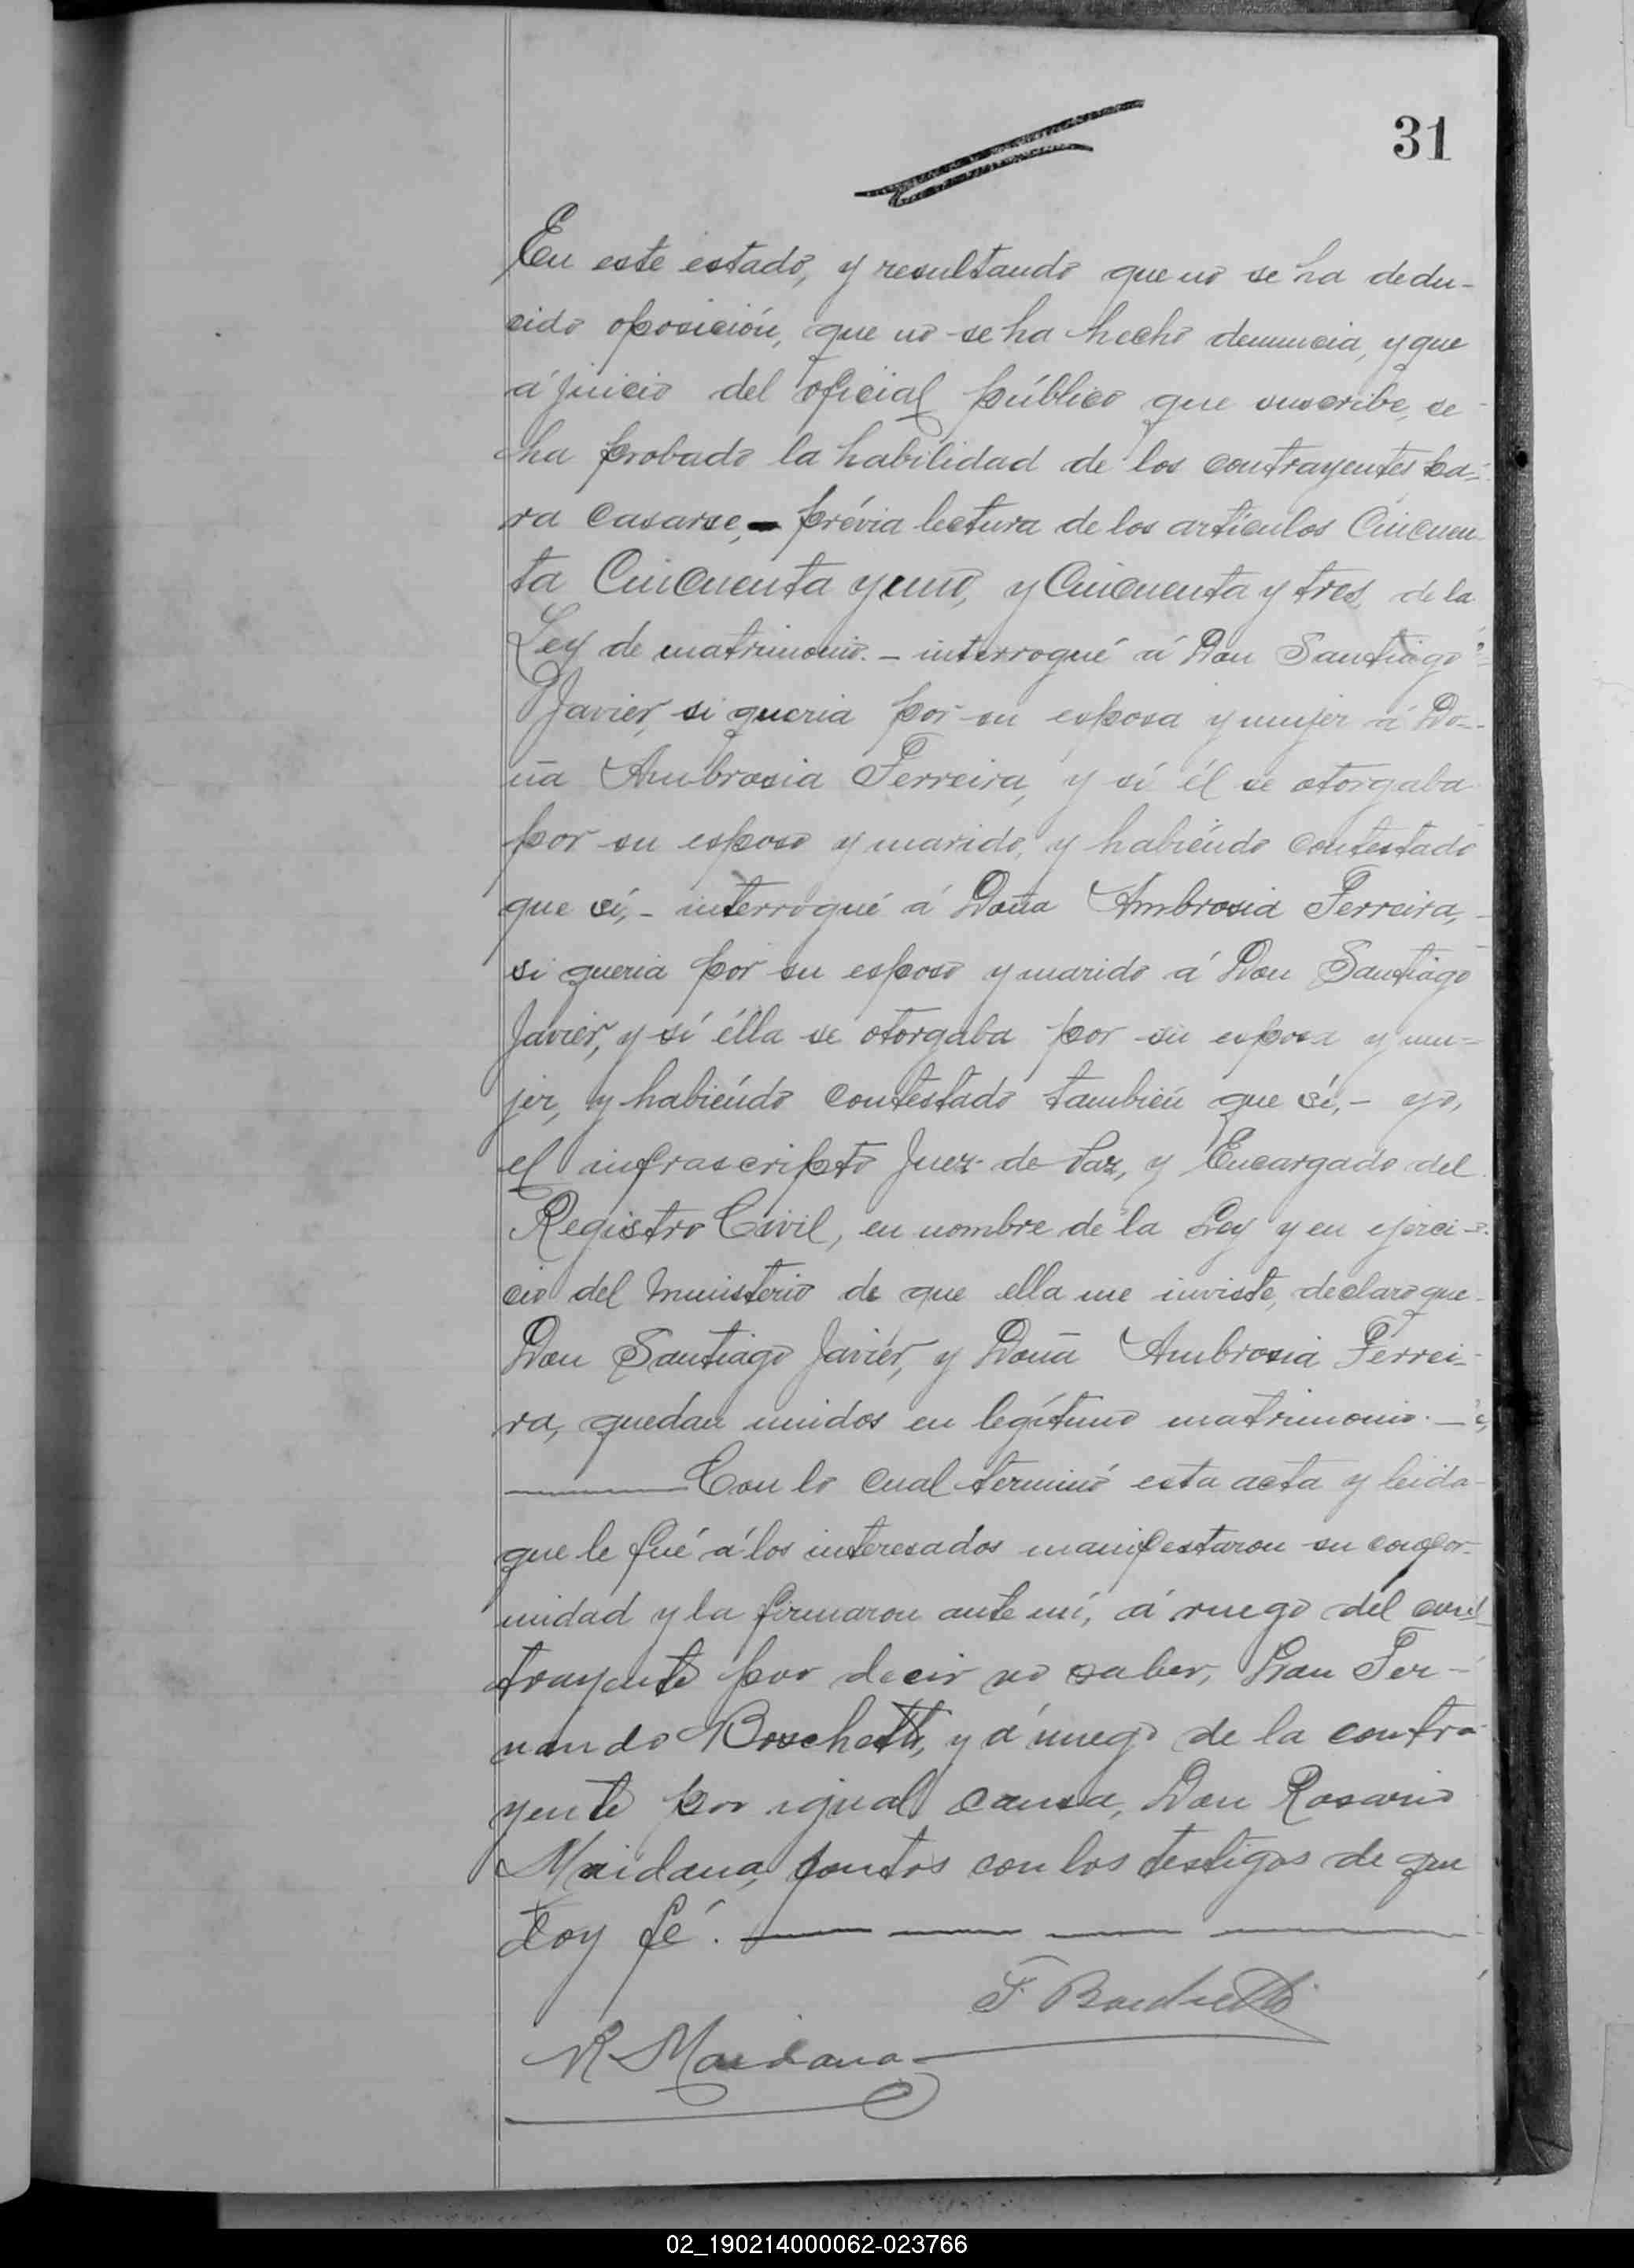 31
En este estado, y resultando que no se ha dedu-
cido oposición, que no se ha hecho denuncia, y que
á juicio del oficial público que suscribe, se
ha probado la habilidad de los contrayentes pa-
ra casarse, - prévia lectura de los artículos Cincuen-
ta Cincuenta y uno, y Cincuenta y tres, de la
Ley de matrimonio. - interrogué á Don Santiago
Javier, si queria por su esposa y mujer á Do-
ña Ambrosia Ferreira, y sí él se otorgaba
por su esposo y marido, y habiéndo contestado
que sí, - interrogué á Doña Ambrosia Ferreira,
si queria por su esposo y marido á Don Santiago
Javier, y sí élla se otorgaba por su esposa y mu-
jer, y habiéndo contestado también que sí, - yo,
el infrascripto Juez de Paz, y Encargado del
Registro Civil, en nombre de la Ley y en ejerci-
cio del Ministerio de que ella me inviste, declaro que
Don Santiago Javiér, y Doña Ambrosia Ferrei-
ra, quedan unidos en legítimo matrimonio. -
Con lo cual terminó esta acta y leida
que le fué á los interesados manifestaron su confor-
midad y la firmaron ante mí, á ruego del con-
trayente por decir no saber, Don Fer-
nando Boschetti, y á ruego de la contra-
yente por igual causa, Don Rosario
Maidana, juntos con los testigos de que
doy fé.
F. Boschetti
R Maidana
02_190214000062-023766